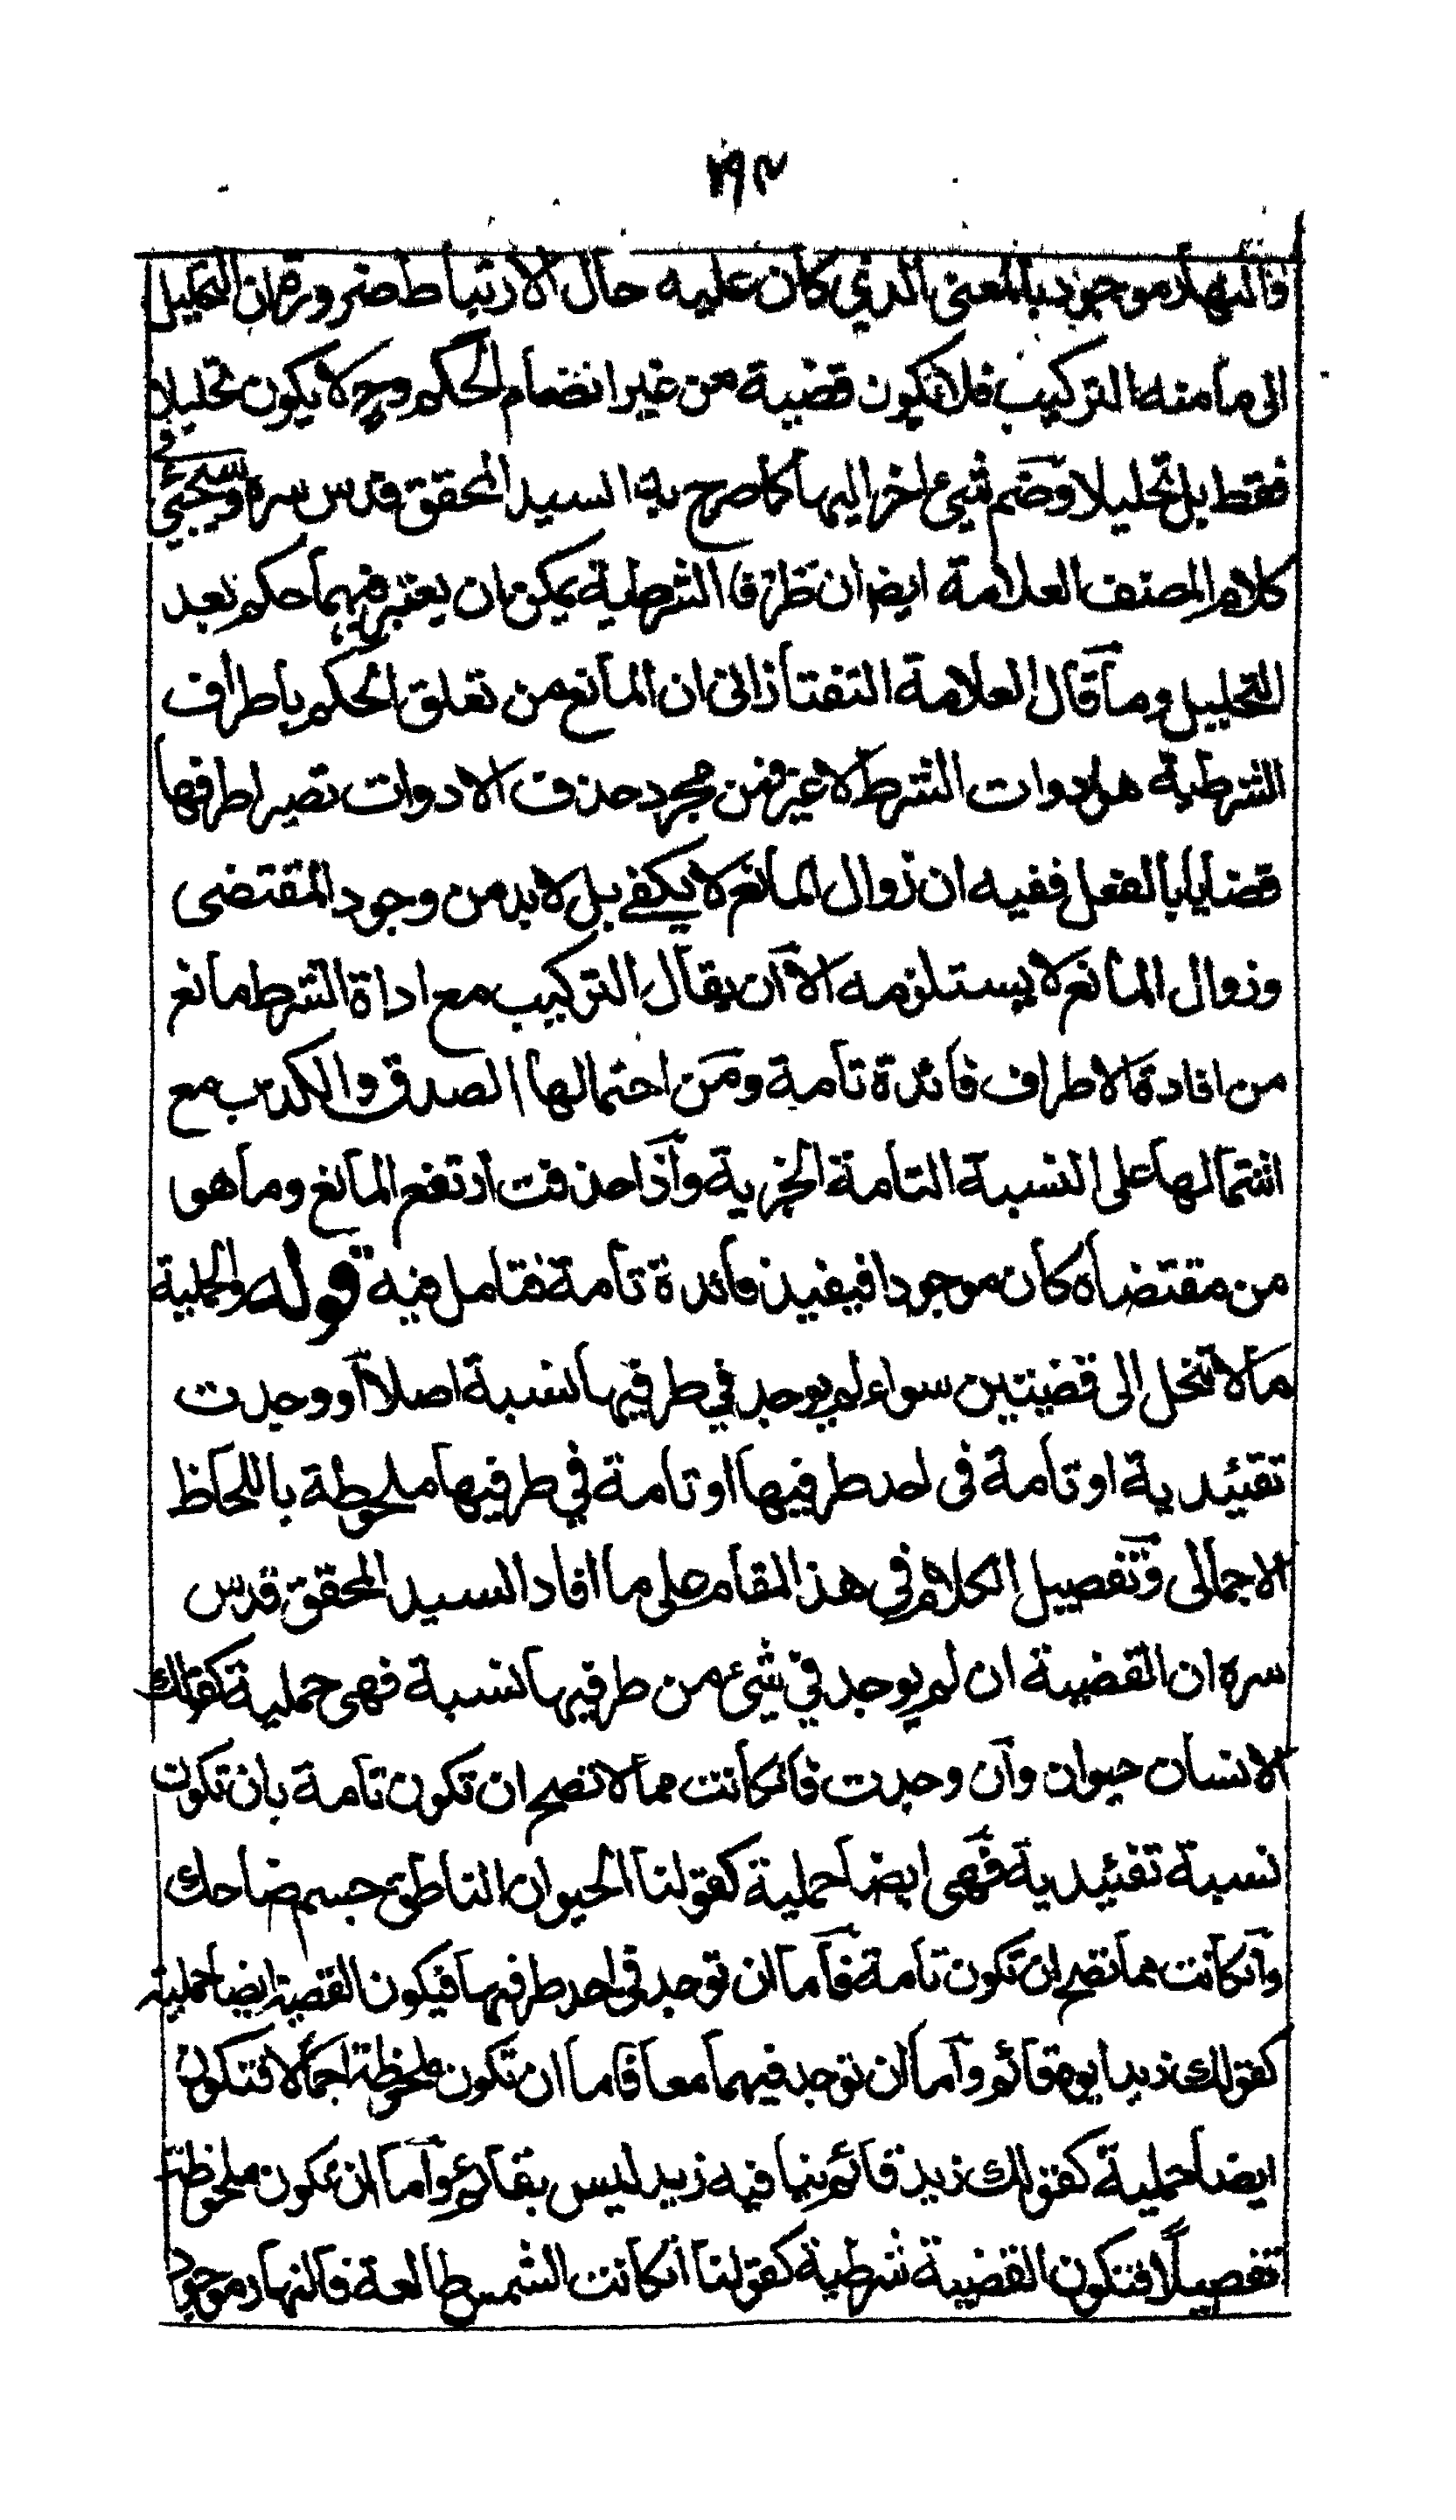 ١٩٢
فالنهار موجود بالمعنى الذي كان عليه حال الارتباط ضرورة ان التحليل
الى ما منه التركيب فلا تكون قضية من غير انضمام الحكم وح لا يكون تحليلا
فقط بل تحليلا وضم شيء اخر اليها كما صرح به السيد المحقق قدس سره وسيجيء في
كلام المصنف العلامة ايضا ان طرفا الشرطية يمكن ان يعتبر فيهما حكم بعد
التحليل وما قال العلامة التفتازانى ان المانع من تعلق الحكم باطراف
الشرطية هو ادوات الشرط لا غير فمن مجرد حذف الادوات تصير اطرافها
قضايا بالفعل ففيه ان زوال المانع لا يكفي بل لا بد من وجود المقتضى
وزوال المانع لا يستلزمه الا ان يقال التركيب مع اداة الشرط مانع
من افادة الاطراف فائدة تامة ومن احتمالها الصدق والكذب مع
اشتمالها على النسبة التامة الخبرية واذا حذفت ارتفع المانع وما هو
من مقتضاه كان موجودا فيفيد فائدة تامة فتامل فيه قوله والحملية
ما لا تنحل الى قضيتين سواء لم يوجد في طرفيها نسبة اصلا او وجدت
تقئيدية او تامة فى احد طرفيها او تامة في طرفيها ملحوظة باللحاظ
الاجمالى وتفصيل الكلام في هذا المقام على ما افاد السيد المحقق قدس
سره ان القضية ان لم يوجد في شيء من طرفيها نسبة فهى حملية كقولك
الانسان حيوان وان وجدت فانكانت مما لا تصح ان تكون تامة بان تكون
نسبة تقئيدية فهى ايضا حملية كقولنا الحيوان الناطق جسم ضاحك
وانكانت مما تصح ان تكون تامة فاما ان توجد في احد طرفيها فيكون القضية ايضا حملية
كقولك زيد ابوه قائم واما ان توجد فيهما معا فاما ان تكون ملحوظة اجمالا فتكون
ايضا حملية كقولك زيد قائم ينافيه زيد ليس بقائم واما ان تكون ملحوظة
تفصيلا فتكون القضية شرطية كقولنا انكانت الشمس طالعة فالنهار موجود